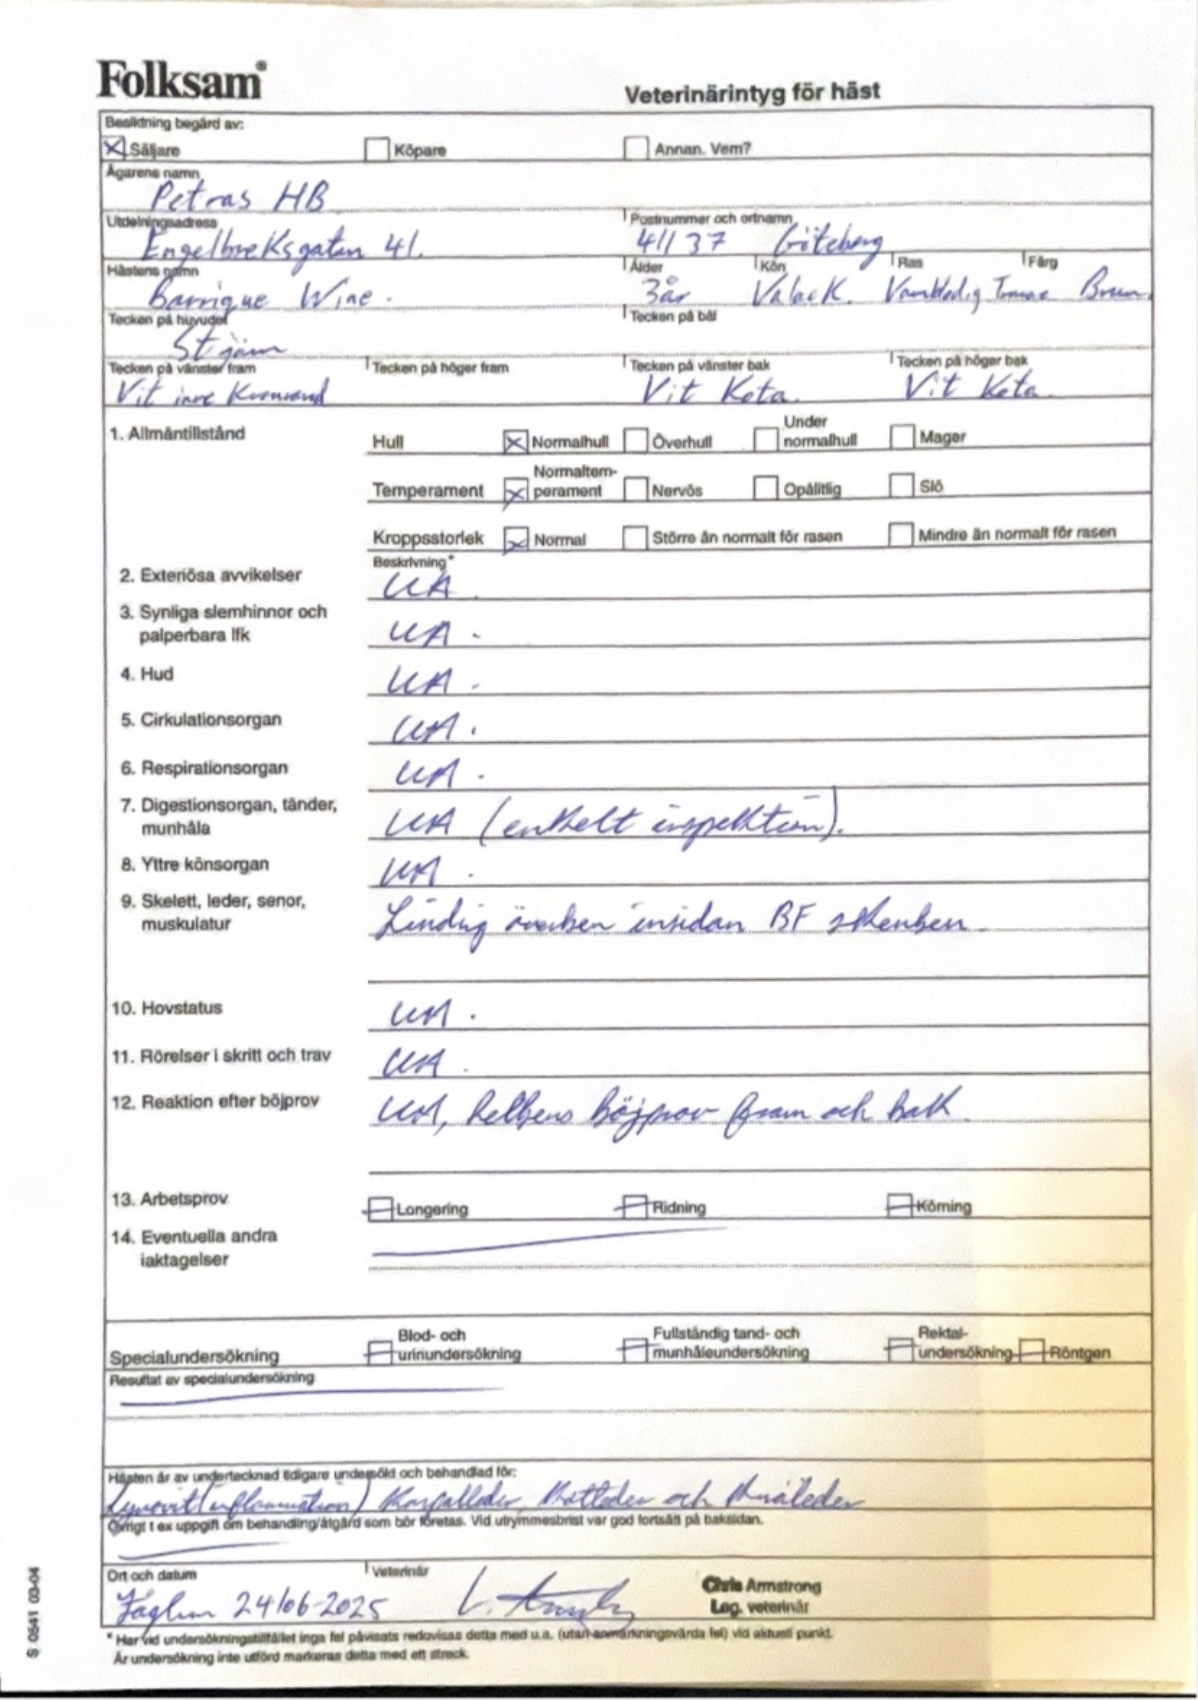 Folksam®
Veterinärintyg för häst
Besiktning begärd av:
Säljare Köpare Annan. Vem?
Ägarens namn
Petras HB
Utdelningsadress Postnummer och ortnamn
Engelbreksgatan 41. 411 37 Göteborg
Hästens namn Ålder Kön Ras Färg
Barrique Wine. 3år Valack. Varmblodig Travare Brun
Tecken på huvudet Tecken på bål
Stjärn
Tecken på vänster fram Tecken på höger fram Tecken på vänster bak Tecken på höger bak
Vit inre Kronrand Vit Kota. Vit Kota
1. Allmäntillstånd Hull Normalhull Överhull Under normalhull Mager
Temperament Normaltemperament Nervös Opålitlig Slö
Kroppsstorlek Normal Större än normalt för rasen Mindre än normalt för rasen
Beskrivning*
2. Exteriösa avvikelser UA
3. Synliga slemhinnor och
palperbara lfk UA.
4. Hud UA.
5. Cirkulationsorgan UA.
6. Respirationsorgan UA.
7. Digestionsorgan, tänder,
munhåla UA (enkelt inspektion).
8. Yttre könsorgan UA.
9. Skelett, leder, senor,
muskulatur Lindrig överben insidan BF skenben
10. Hovstatus UA.
11. Rörelser i skritt och trav UA.
12. Reaktion efter böjprov UA, helbens böjprov fram och bak.
13. Arbetsprov Longering Ridning Körning
14. Eventuella andra
iaktagelser
Specialundersökning Blod- och urinundersökning Fullständig tand- och munhåleundersökning Rektal- undersökning Röntgen
Resultat av specialundersökning
Hästen är av undertecknad tidigare undersökt och behandlad för:
Synovit (inflammation) Karpalleder, Kotleder och Knäleder
Övrigt t ex uppgift om behandling/åtgärd som bör företas. Vid utrymmesbrist var god fortsätt på baksidan.
Ort och datum Veterinär
24/06-2025 Chris Armstrong
Leg. veterinär
* Har vid undersökningstillfället inga fel påvisats redovisas detta med u.a. (utan anmärkningsvärda fel) vid aktuell punkt.
Är undersökning inte utförd markeras detta med ett streck.
S 0541 03-04